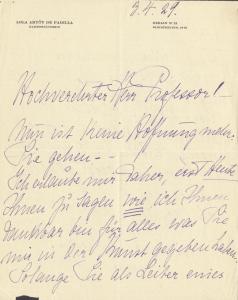 LOLA ARTÔT DE PADILLA
KAMMERSÄNGERIN
BERLIN W 15
3.4.29.
Hochverehrter Herr Professor!
Nun ist keine Hoffnung mehr.
Sie gehen - -
Ich erlaube mir daher, erst heute
Ihnen zu sagen wie ich Ihnen
dankbar bin für alles was Sie
mir in der Kunst gegeben haben.
Solange Sie als Leiter eines